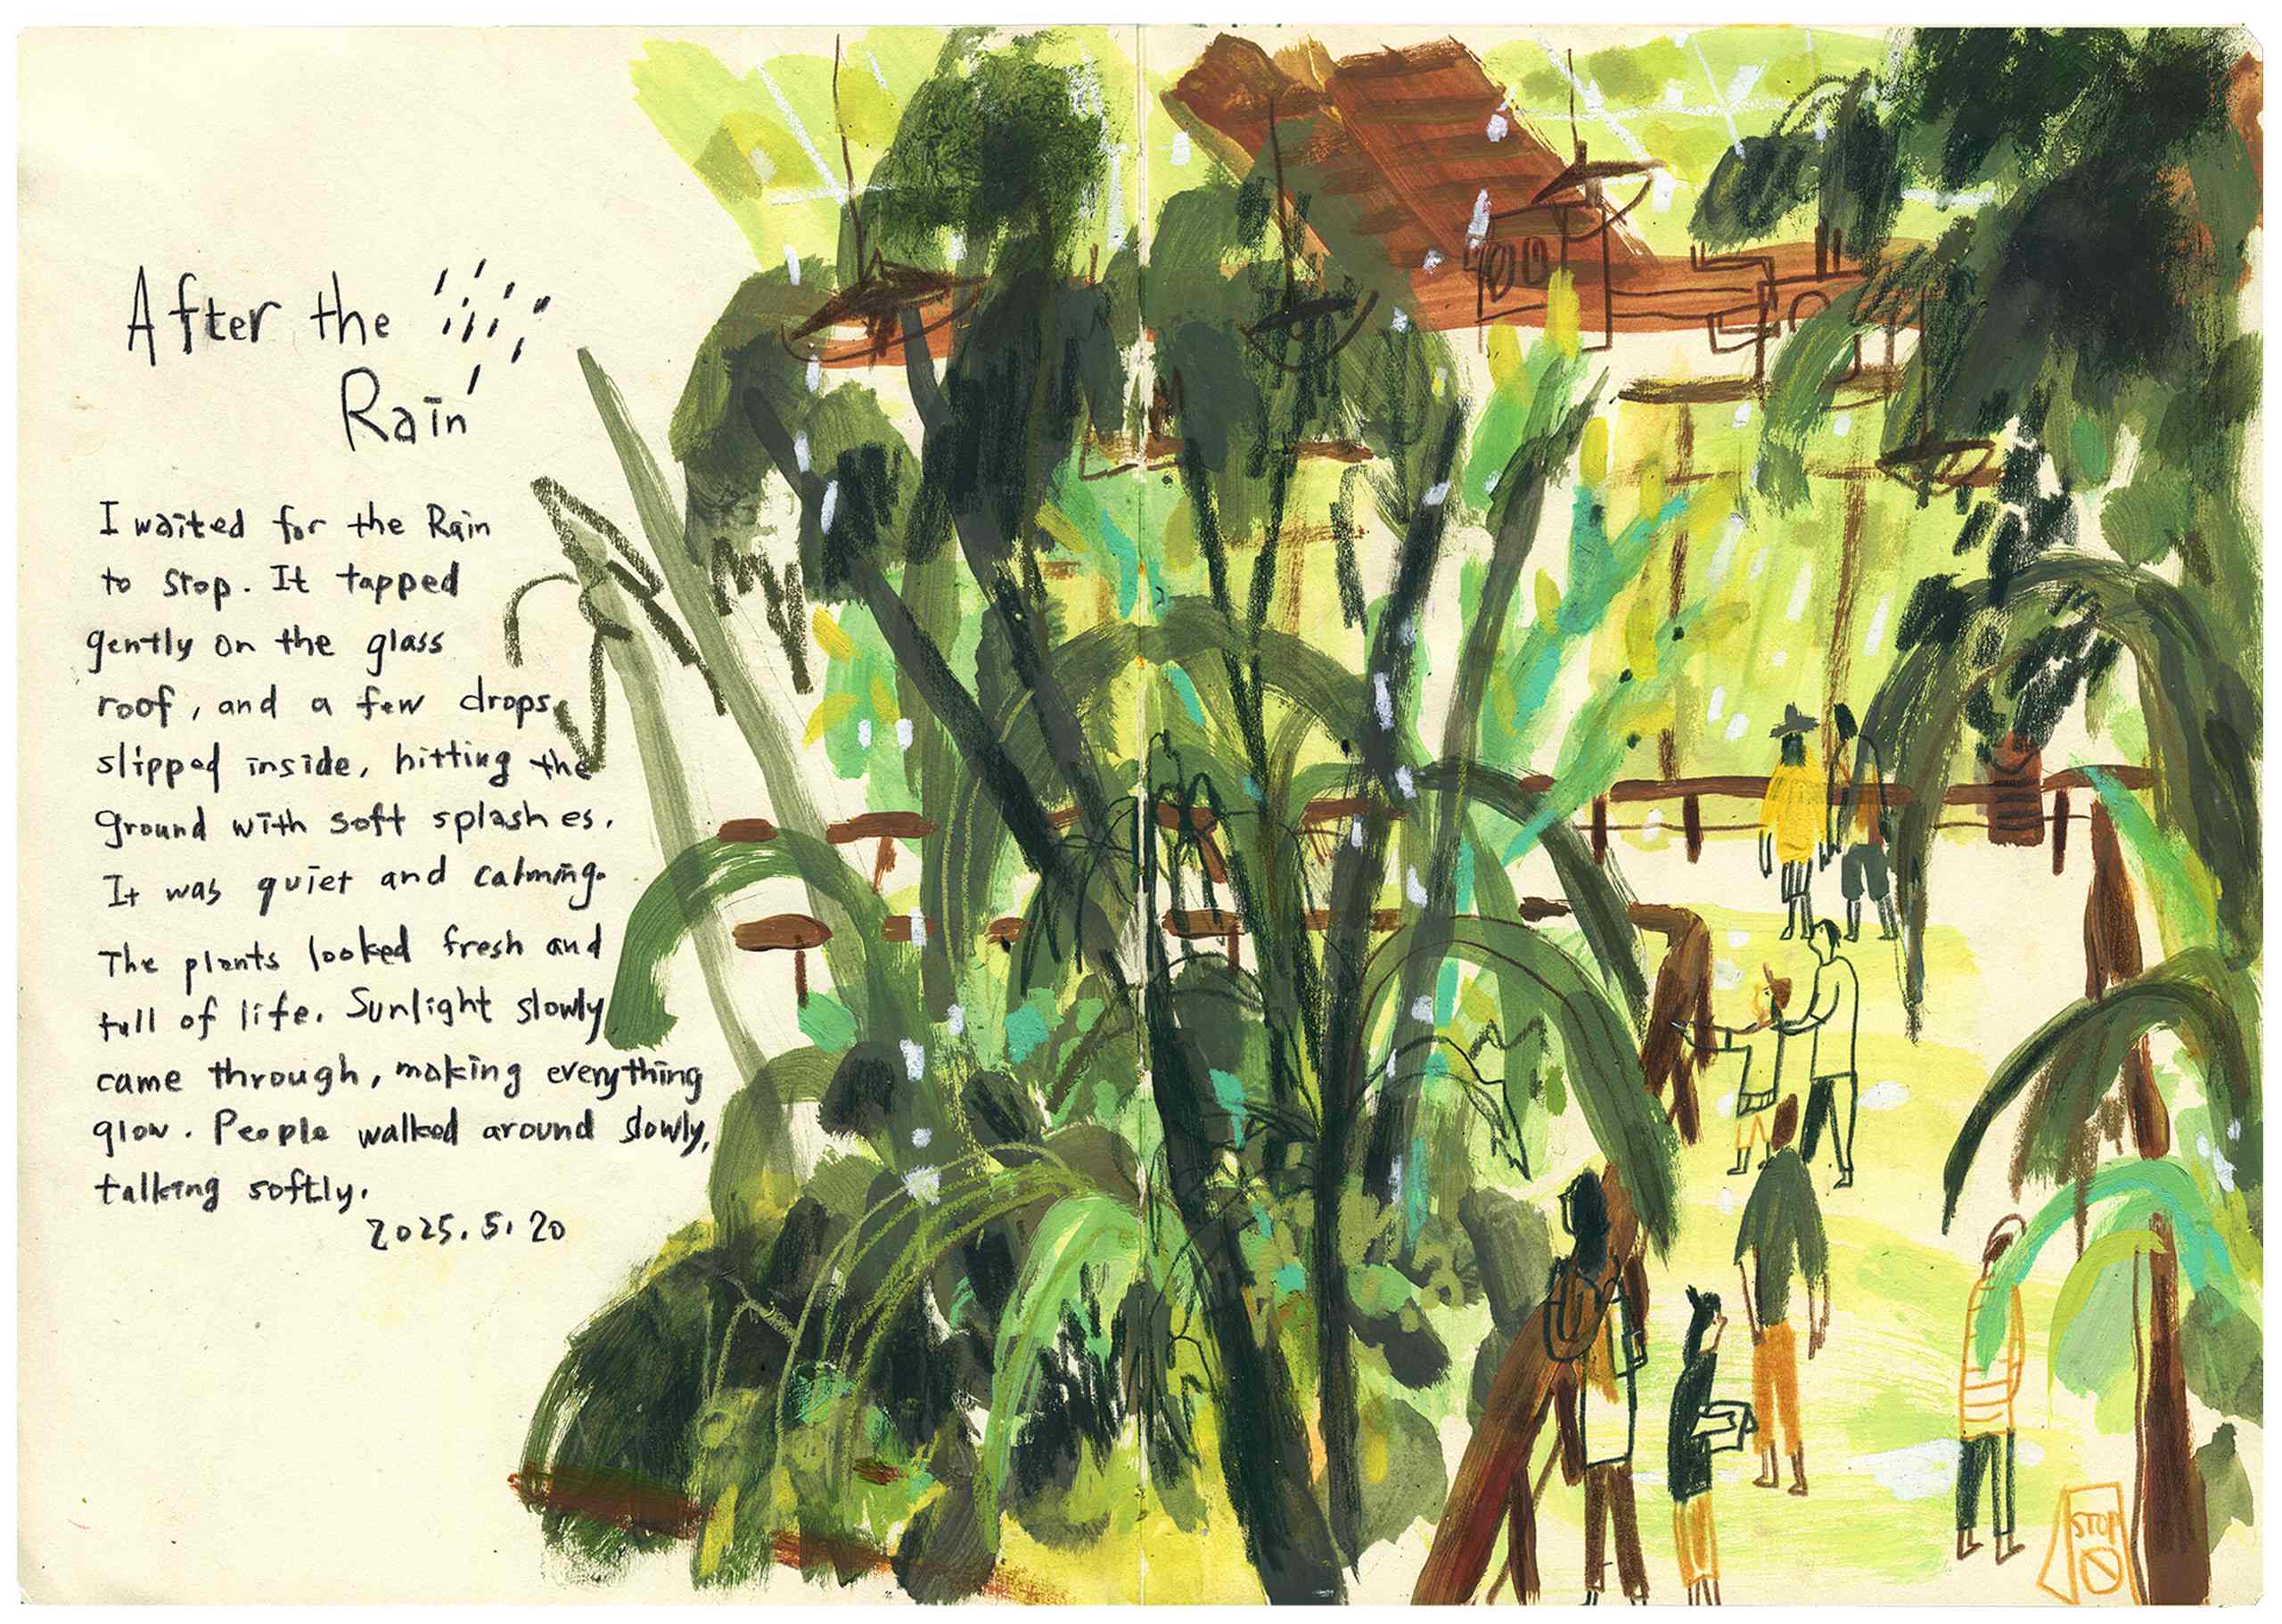 After the
Rain
I waited for the Rain
to stop. It tapped
gently on the glass
roof, and a few drops
slipped inside, hitting the
ground with soft splashes.
It was quiet and calming.
The plants looked fresh and
full of life. Sunlight slowly
came through, making everything
glow. People walked around slowly,
talking softly.
2025.5.20
STOP